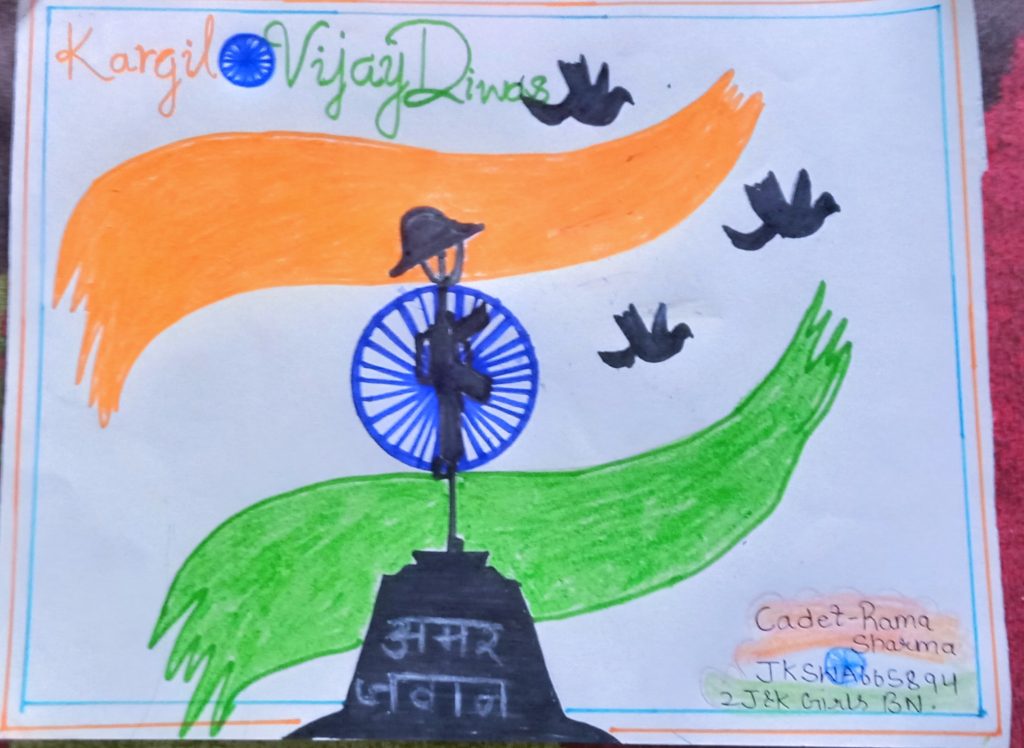 Kargil Vijay Diwas
अमर
जवान
Cadet-Rama
Sharma
JKSWA665894
2 J&K Girls BN.